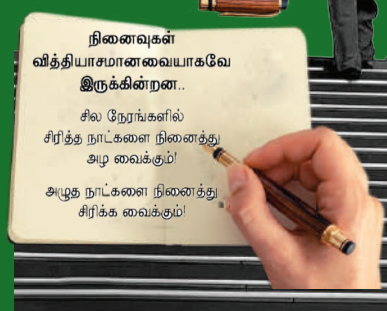 நினைவுகள்
வித்தியாசமானவையாகவே
இருக்கின்றன..
சில நேரங்களில்
சிரித்த நாட்களை நினைத்து
அழ வைக்கும்!
அழுத நாட்களை நினைத்து
சிரிக்க வைக்கும்!